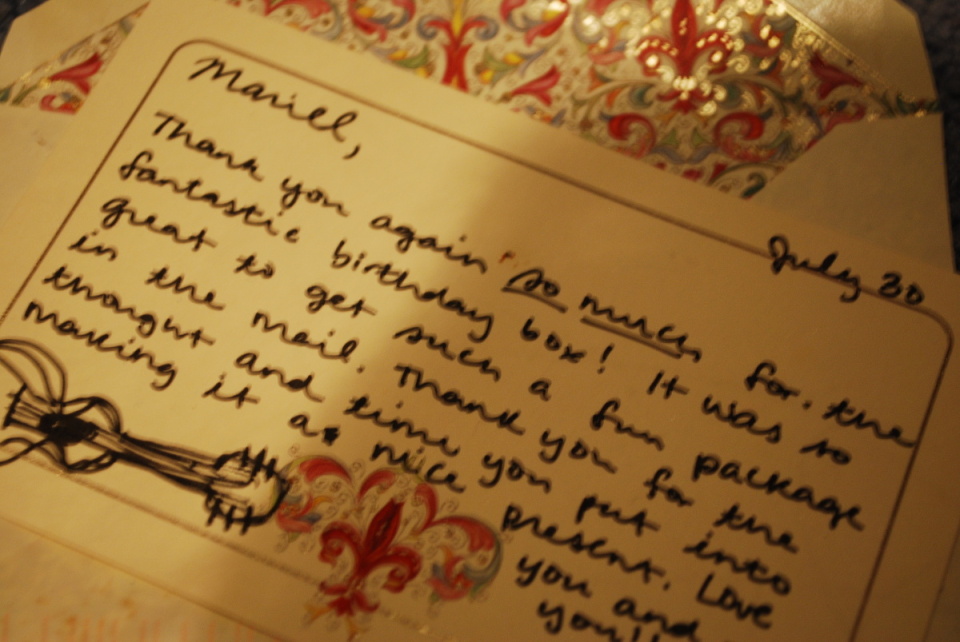 July 30
Mariel,
Thank you again so much for the
fantastic birthday box! It was so
great to get such a fun package
in the mail. Thank you for the
thought and time you put into
making it a nice present. Love
you and
you!!